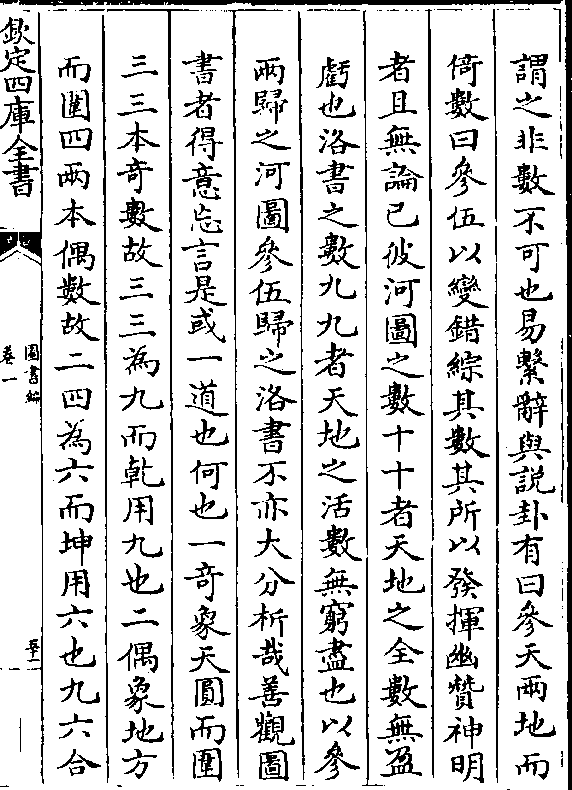 謂之非數不可也易繫辭與説卦有曰參天兩地而
倚數曰參伍以變錯綜其數其所以發揮幽贊神明
者且無論已彼河圖之數十十者天地之全數無盈
虧也洛書之數九九者天地之活數無窮盡也以參
兩歸之河圖參伍歸之洛書不亦大分析哉善觀圖
書者得意忘言是或一道也何也一奇象天圓而圍
三三本奇數故三三為九而乾用九也二偶象地方
而圍四兩本偶數故二四為六而坤用六也九六合
欽定四庫全書
圖書編
卷一